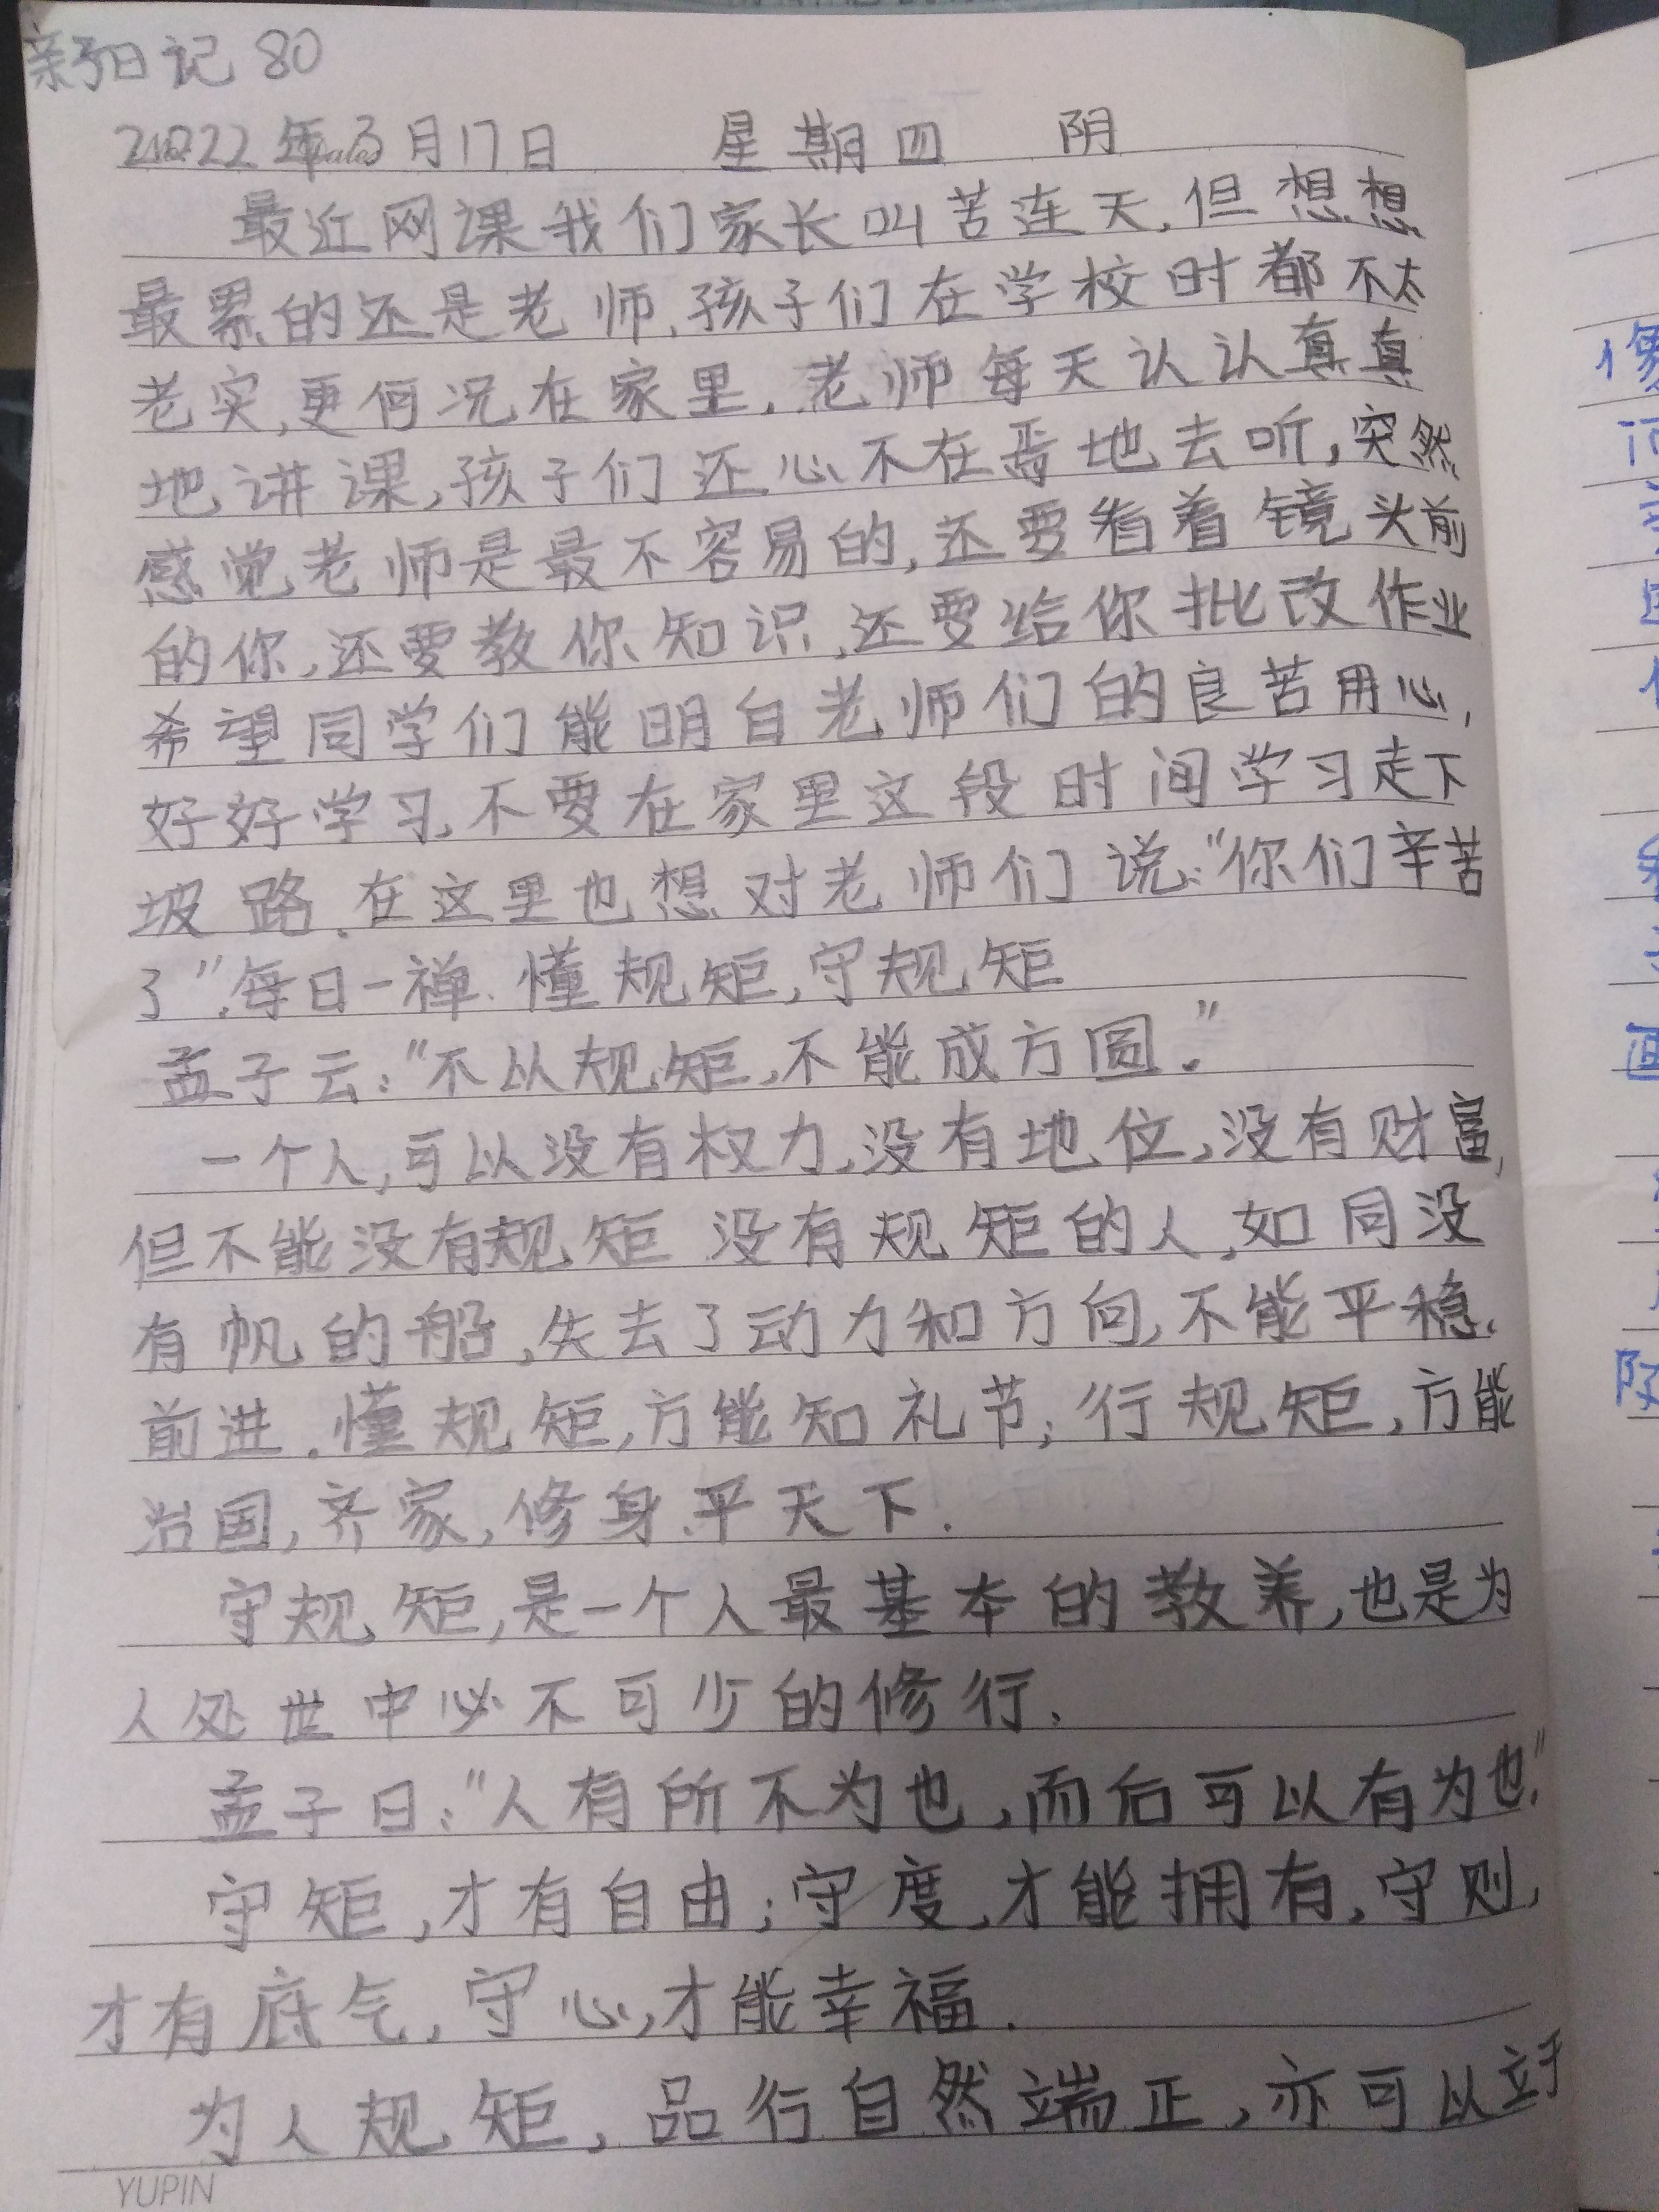 亲子日记 80
2022年3月17日 星期四 阴
最近网课我们家长叫苦连天,但想想
最累的还是老师,孩子们在学校时都不太
老实,更何况在家里,老师每天认认真真
地讲课,孩子们还心不在焉地去听,突然
感觉老师是最不容易的,还要看着镜头前
的你,还要教你知识,还要给你批改作业
希望同学们能明白老师们的良苦用心,
好好学习,不要在家里这段时间学习走下
坡路.在这里也想对老师们说:"你们辛苦
了".每日一禅.懂规矩,守规矩
孟子云:"不以规矩,不能成方圆."
一个人,可以没有权力,没有地位,没有财富,
但不能没有规矩 没有规矩的人,如同没
有帆的船,失去了动力和方向,不能平稳
前进.懂规矩,方能知礼节;行规矩,方能
治国,齐家,修身,平天下.
守规矩,是一个人最基本的教养,也是为
人处世中必不可少的修行.
孟子曰:"人有所不为也,而后可以有为也."
守矩,才有自由;守度,才能拥有,守则,
才有底气,守心,才能幸福.
为人规矩,品行自然端正,亦可以立于
YUPIN